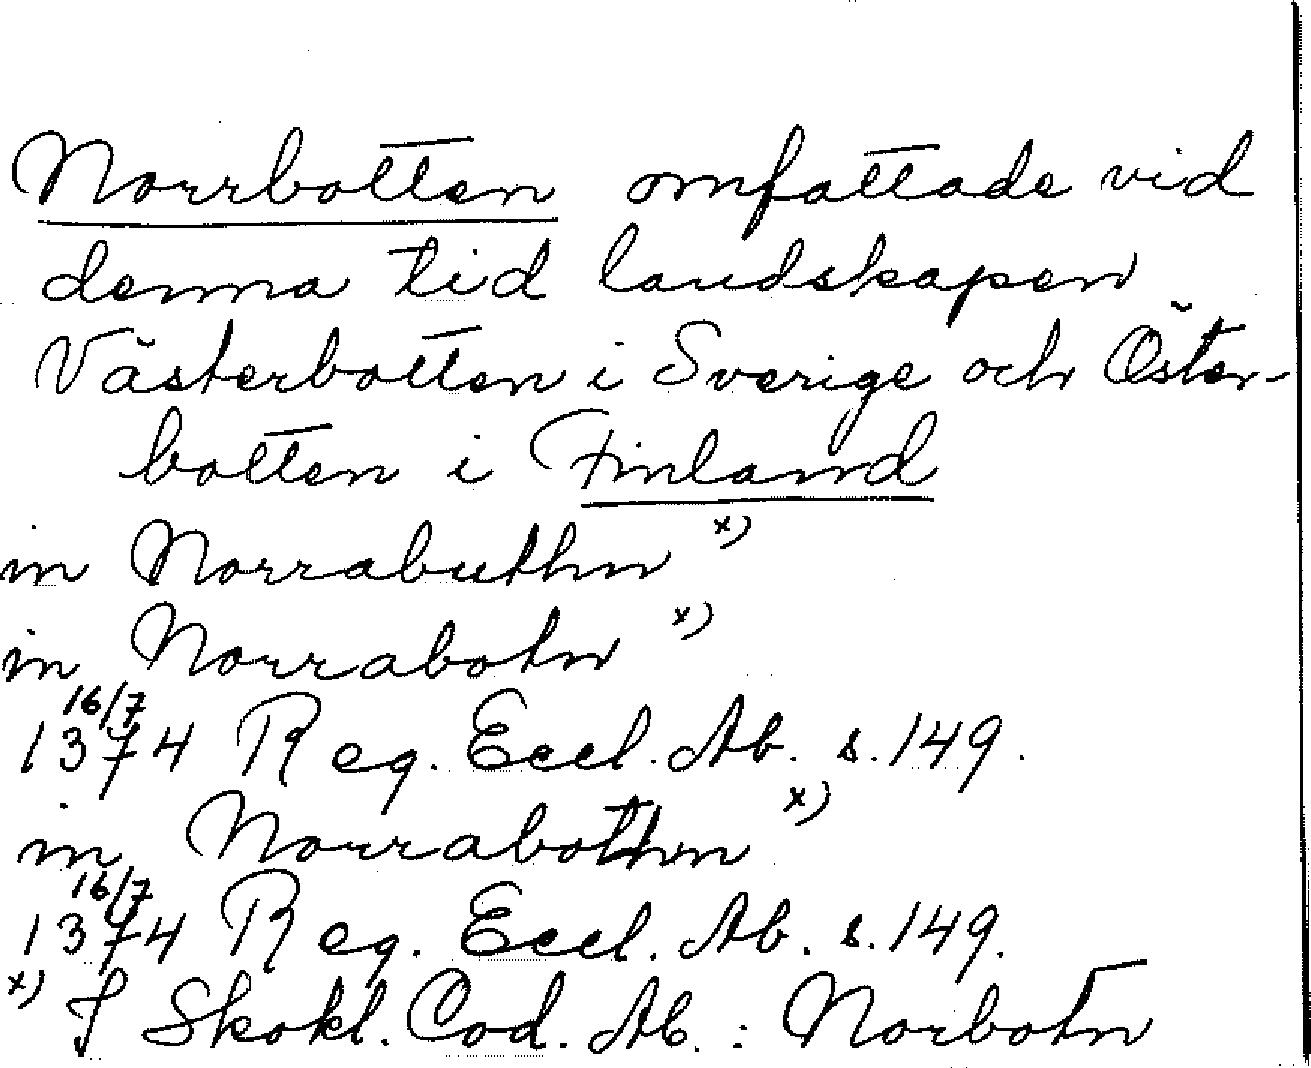 Norrbotten omfattade vid
denna tid landskapen
Västerbotten i Sverige och Öster-
botten i Finland
in Norrabuthn x)
in Norrabotn x)
16/7
1374 Reg. Eccl. Ab. s. 149.
in Norrabothn x)
16/7
1374 Reg. Eccl. Ab. s. 149.
x) I Skokl. Cod. Ab. : Norbotn